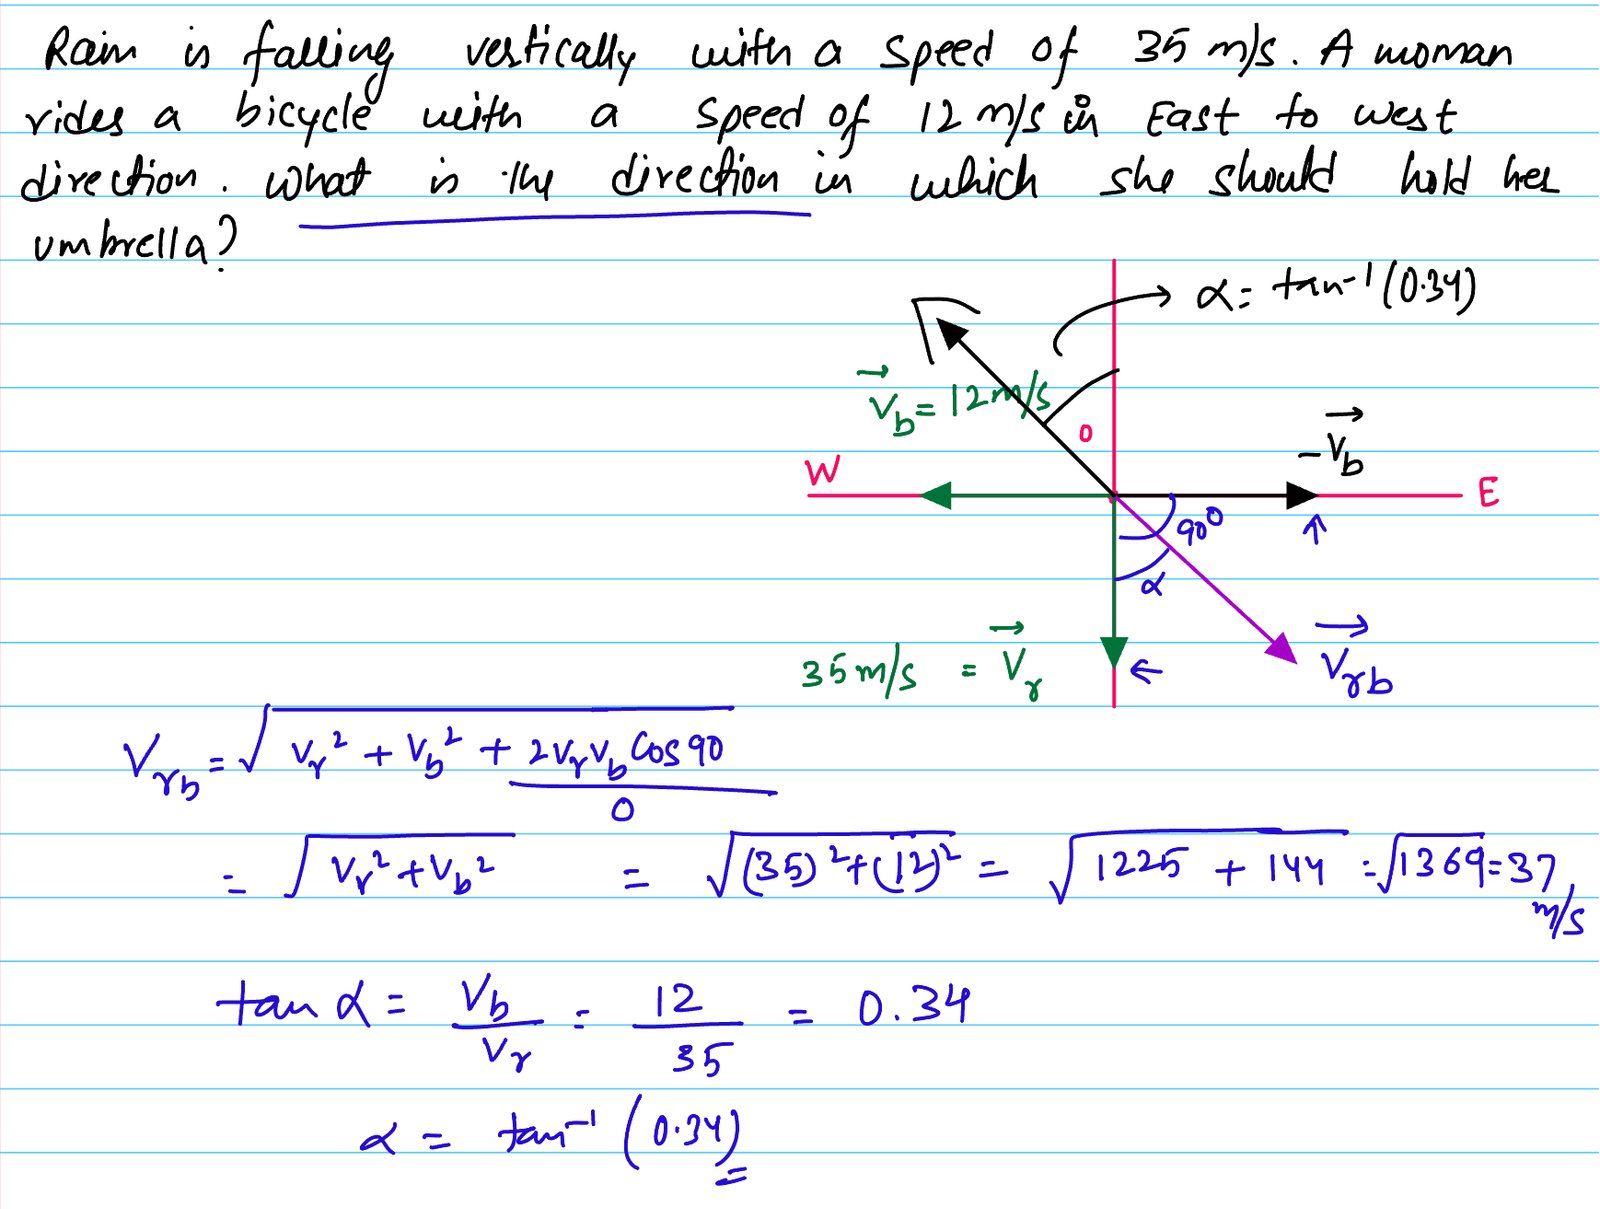 Rain is falling vertically with a speed of 35 m/s. A woman
rides a bicycle with a speed of 12 m/s in East to west
direction. What is the direction in which she should hold her
umbrella?
α = tan⁻¹(0.34)
V⃗b = 12 m/s
0
-V⃗b
W
E
90°
α
35 m/s = V⃗r
V⃗rb
Vrb = √(Vr² + Vb² + 2VrVb Cos 90)
0
= √(Vr² + Vb²) = √((35)² + (12)²) = √(1225 + 144) = √1369 = 37 m/s
tan α = Vb/Vr = 12/35 = 0.34
α = tan⁻¹(0.34)